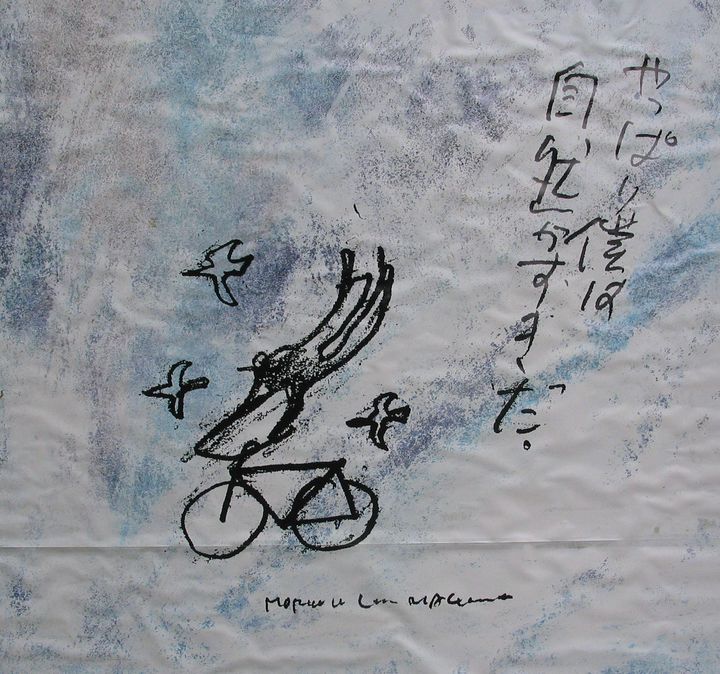 やっぱり僕は
自然がすきだ。